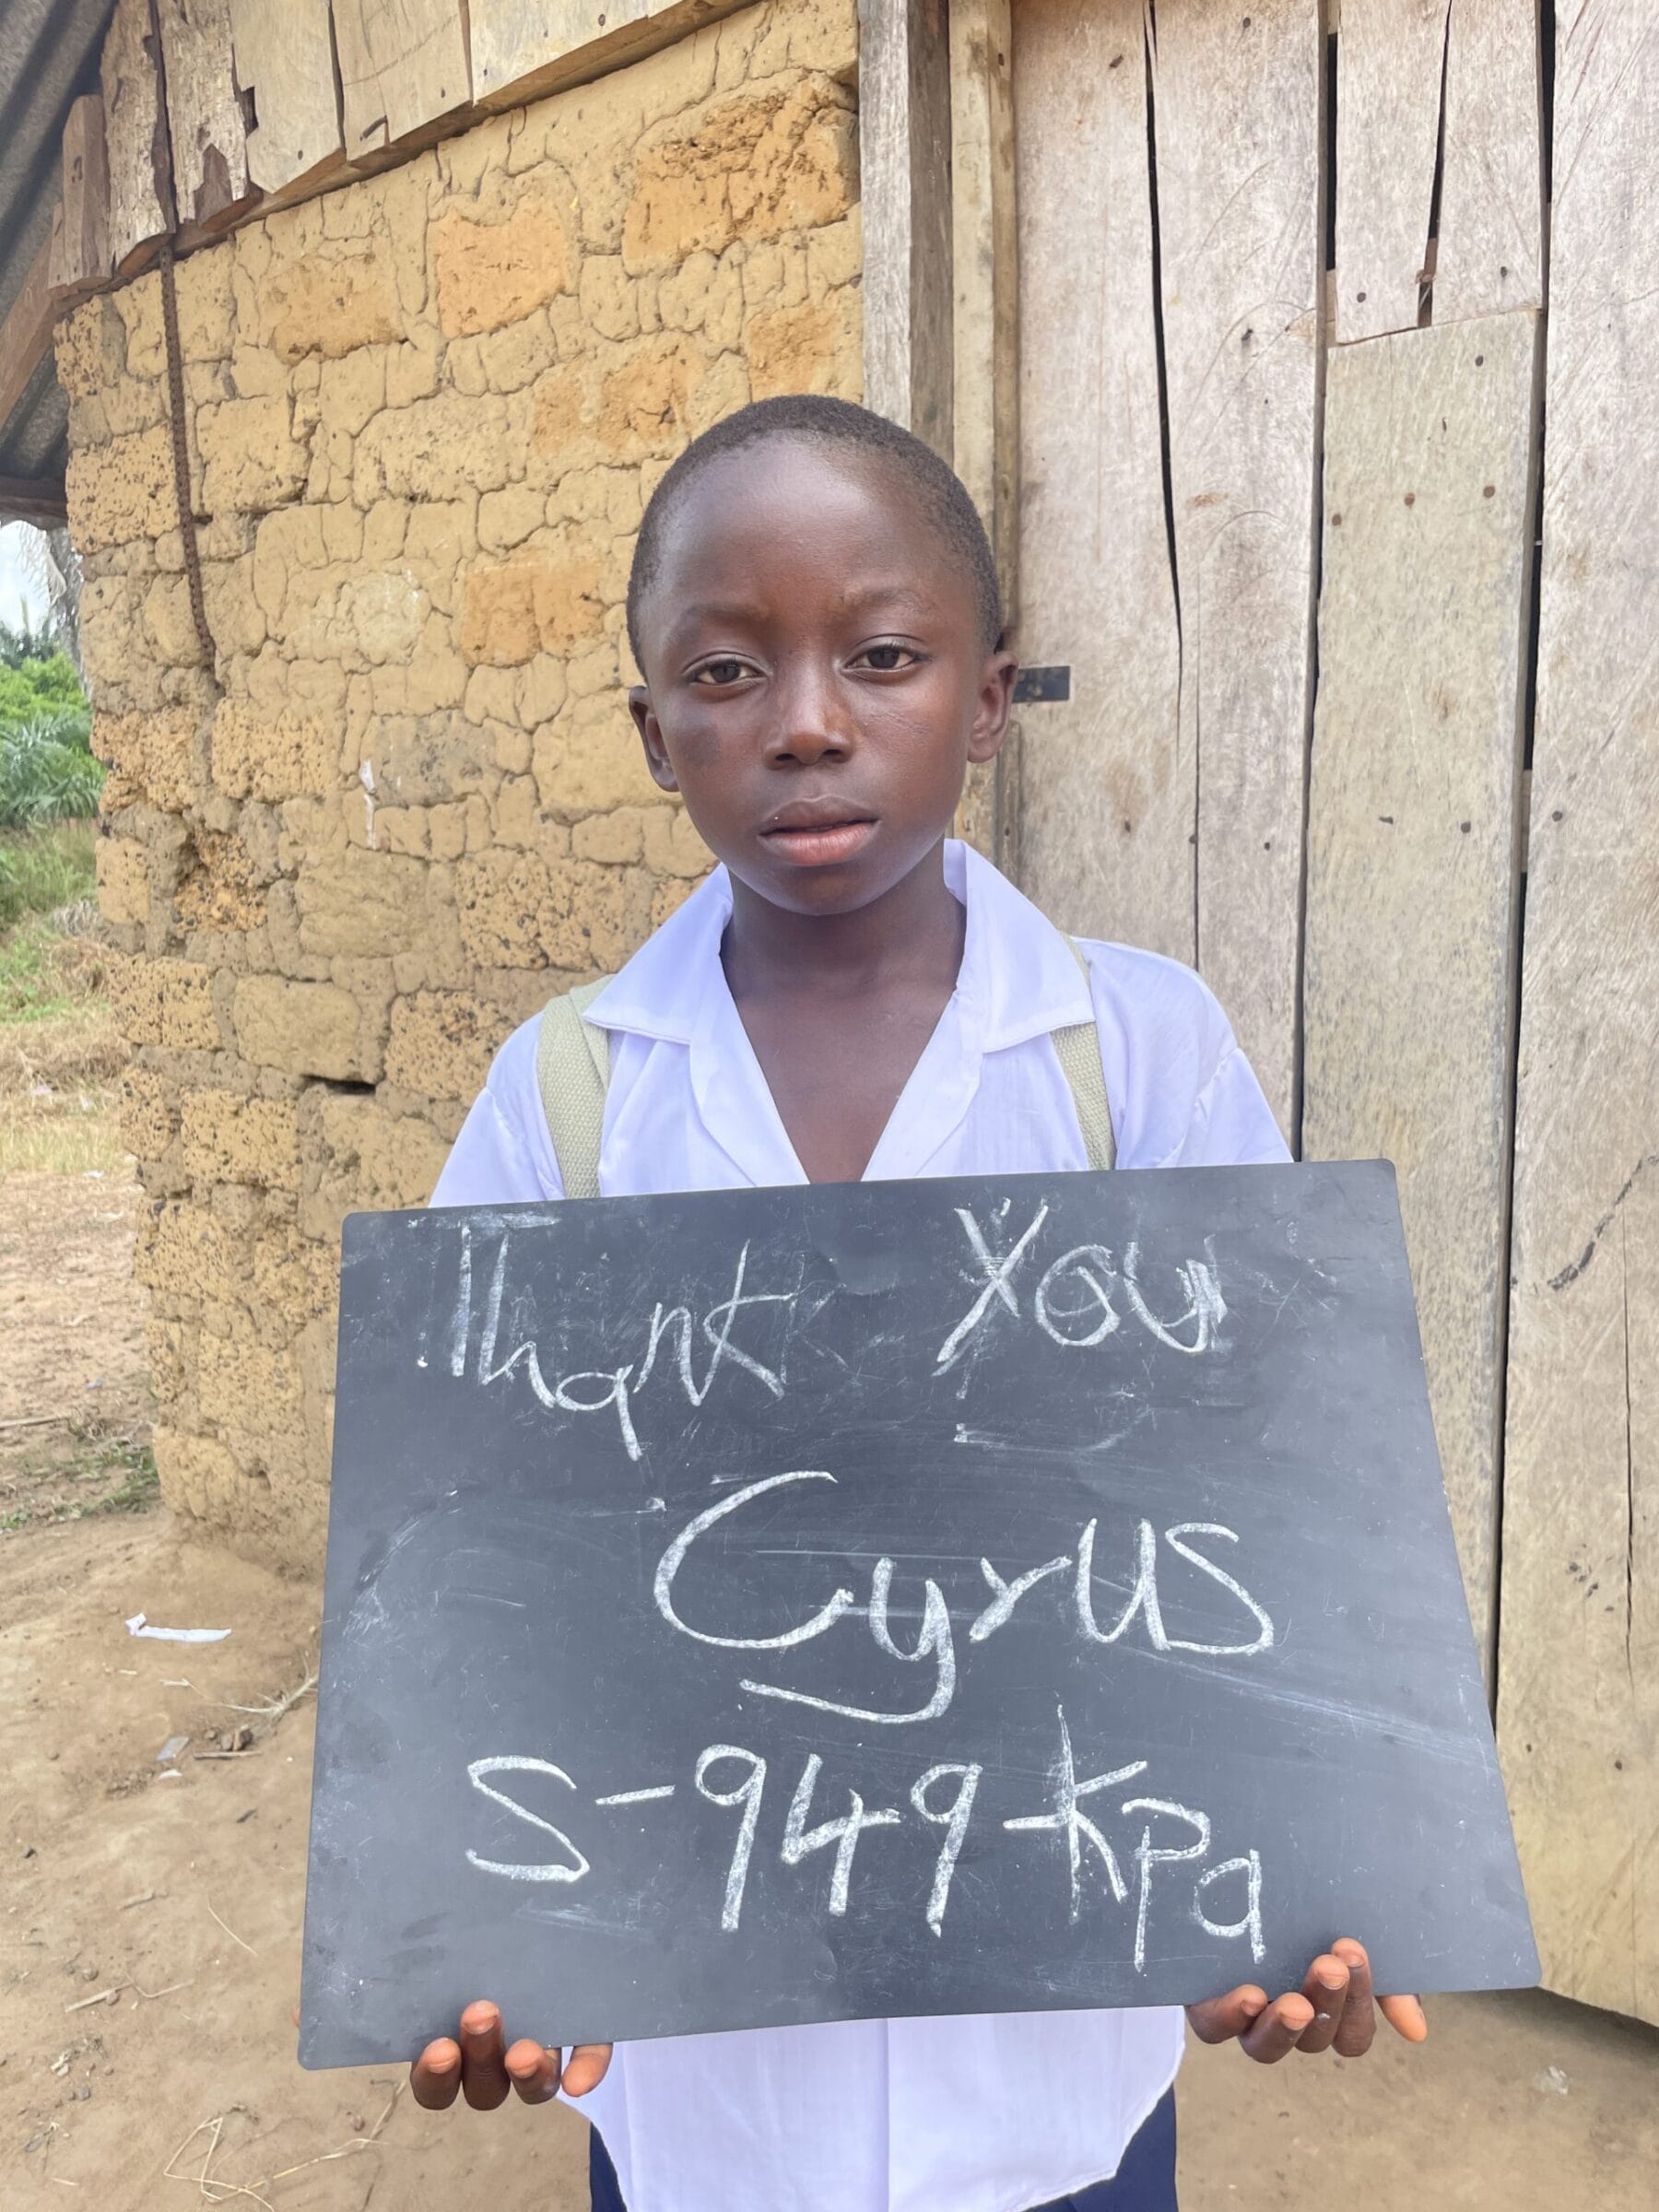 Thank You
Cyrus
S-949-Kpa